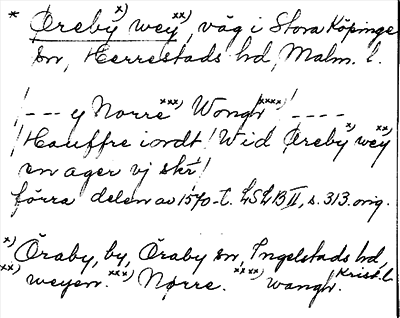 * Öreby x) wey xx), väg i Stora Köpinge
sn, Herrestads hd, Malm. l.
/--- y Norre xxx) Wongh xxxx)/ ----
/Hauffre iordt/ Wid Öreby x) wey xx)
en ager vj skr/
förra delen av 1570-t. LSLB II, s. 313. orig.
x) Öraby, by, Öraby sn, Ingelstads hd,
Krist. l.
xx) weyen. xxx) Nørre. xxxx) wangh.